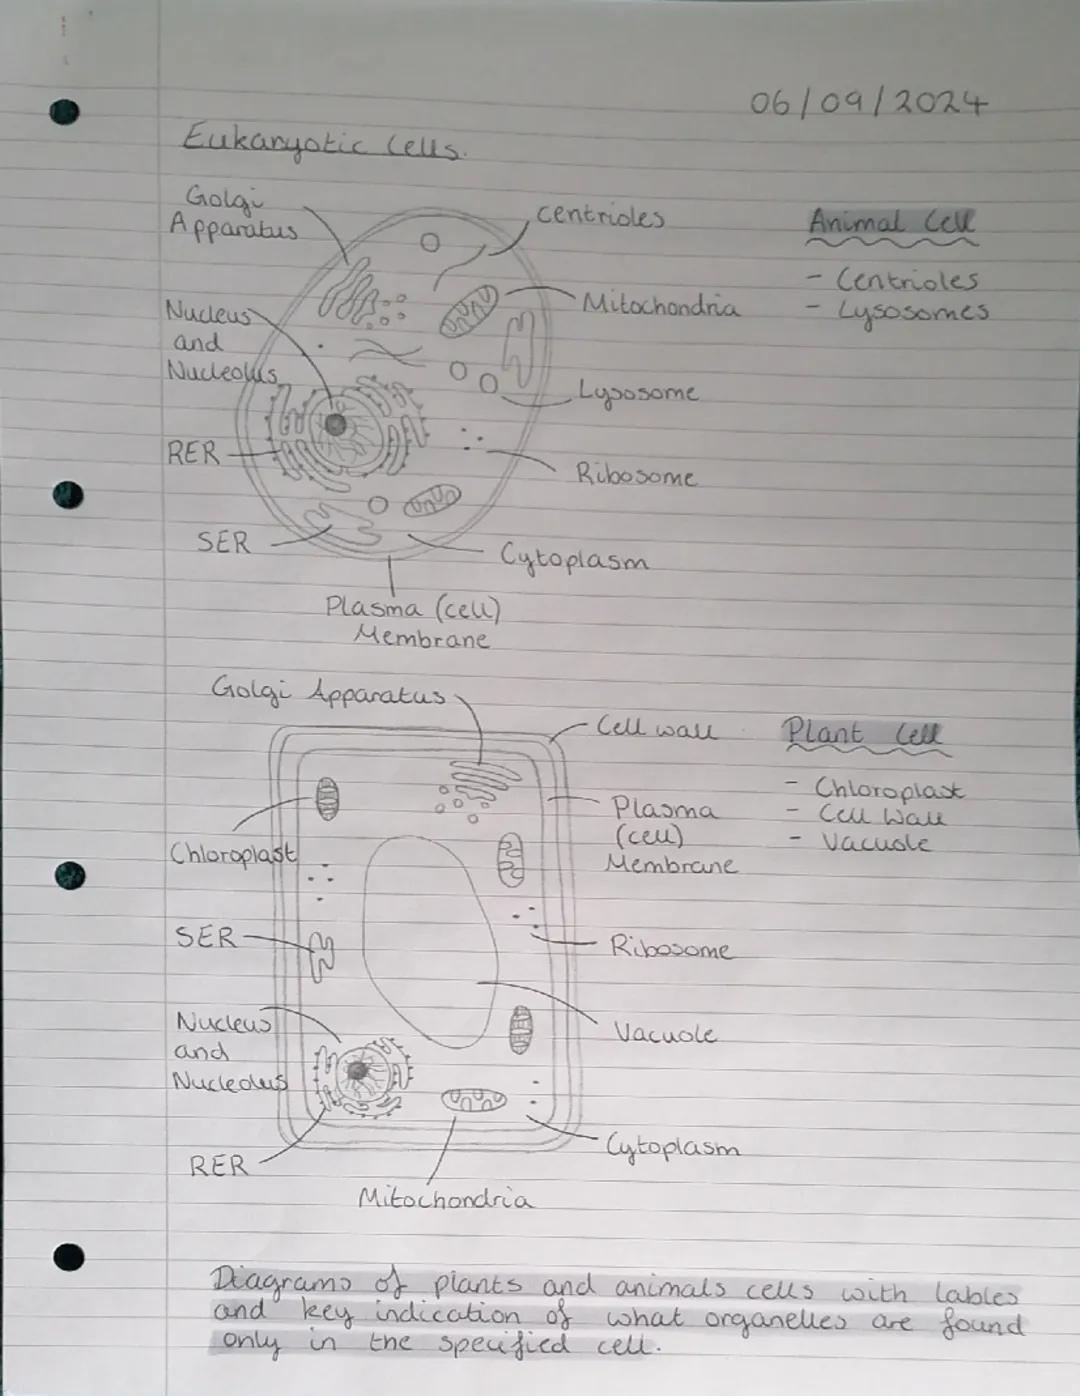 06/09/2024
Eukaryotic Cells.
Golgi
Apparatus
Centrioles
Animal Cell
- Centrioles
- Lysosomes
Nucleus
and
Nucleolus
Mitochondria
Lysosome
RER
Ribosome
SER
Cytoplasm
Plasma (cell)
Membrane
Golgi Apparatus
Cell wall
Plant Cell
- Chloroplast
- Cell Wall
- Vacuole
Plasma
(cell)
Membrane
Chloroplast
SER
Ribosome
Nucleus
and
Nucleolus
Vacuole
RER
Cytoplasm
Mitochondria
Diagrams of plants and animals cells with lables
and key indication of what organelles are found
only in the specified cell.